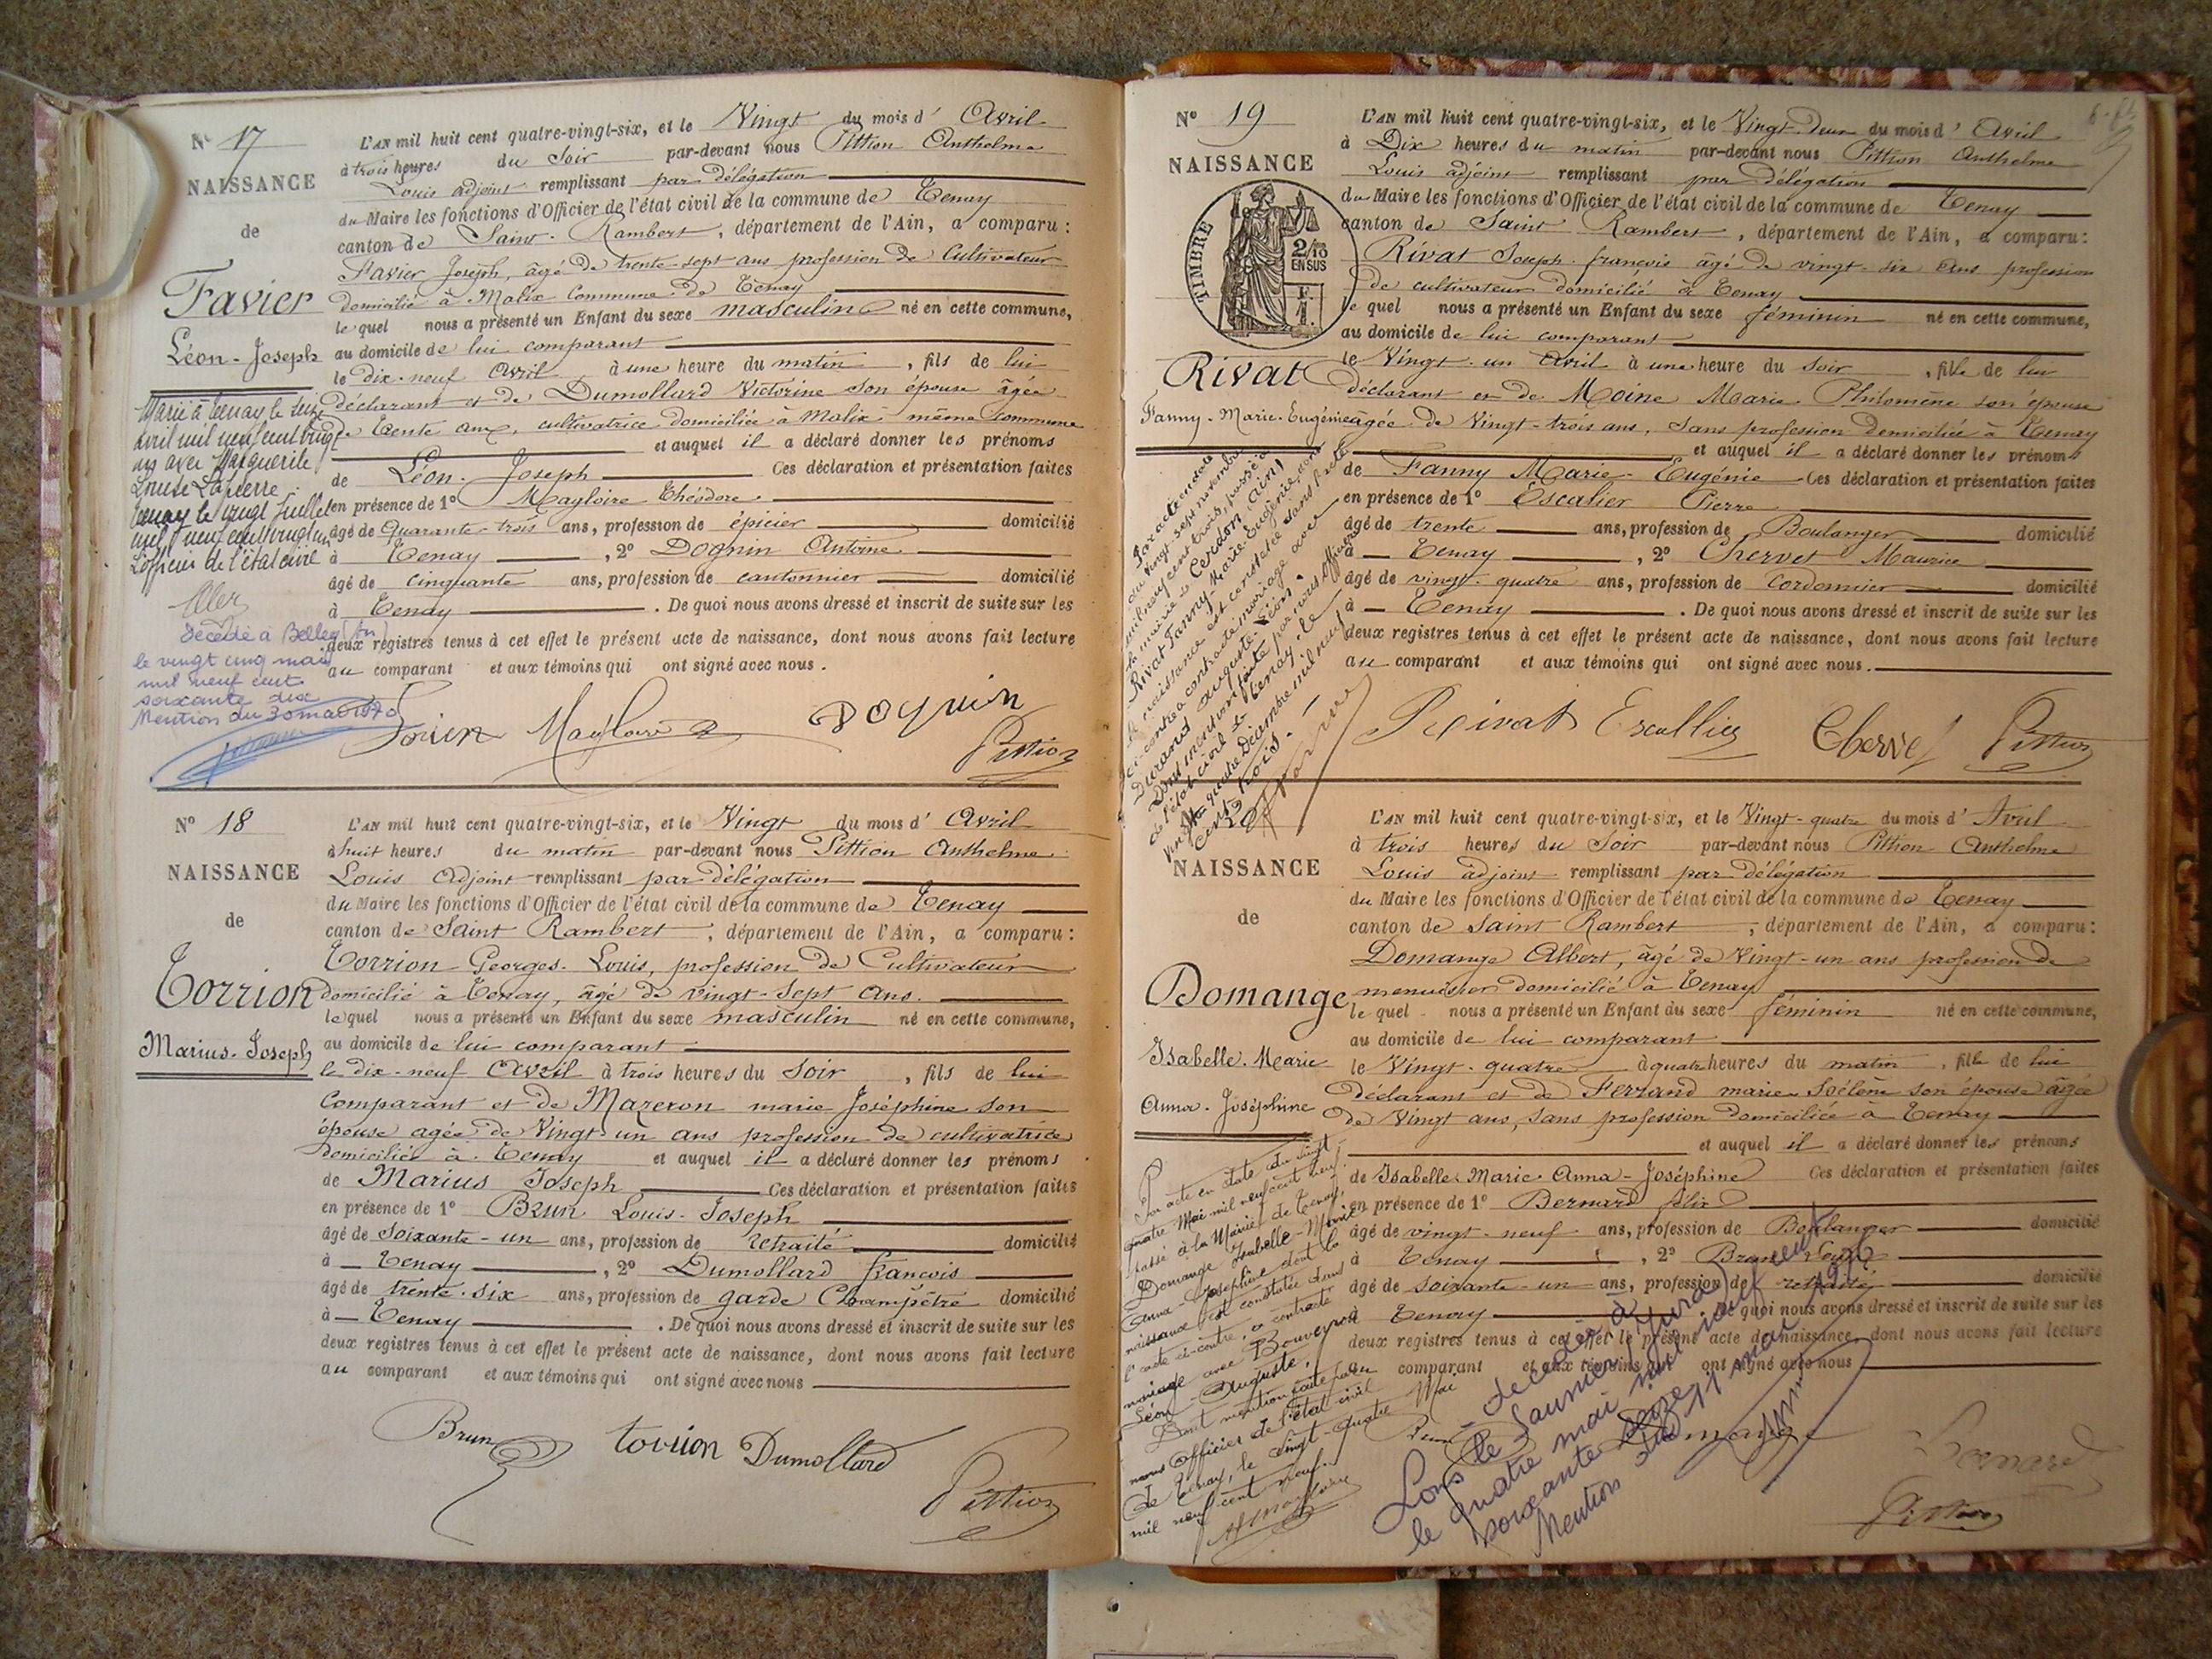 N° 17
NAISSANCE
de
Favier
Léon-Joseph
L'AN mil huit cent quatre-vingt-six, et le Vingt du mois d' Avril
à trois heures du Soir par-devant nous Pittion Anthelme
Louis adjoint remplissant par délégation
du Maire les fonctions d'Officier de l'état civil de la commune de Tenay
canton de Saint-Rambert, département de l'Ain, a comparu :
Favier Joseph, âgé de trente-sept ans profession de Cultivateur
domicilié à Malix Commune de Tenay
lequel nous a présenté un Enfant du sexe masculin né en cette commune,
au domicile de lui comparant
le dix-neuf Avril à une heure du matin, fils de lui
déclarant et de Dumollard Victorine son épouse âgée
de trente ans, cultivatrice domiciliée à Malix même Commune
et auquel il a déclaré donner les prénoms
de Léon-Joseph Ces déclaration et présentation faites
en présence de 1° Magloire Théodore
âgé de Quarante trois ans, profession de épicier domicilié
à Tenay, 2° Dognin Antoine
âgé de cinquante ans, profession de cantonnier domicilié
à Tenay. De quoi nous avons dressé et inscrit de suite sur les
deux registres tenus à cet effet le présent acte de naissance, dont nous avons fait lecture
au comparant et aux témoins qui ont signé avec nous.
Marié à Tenay le seize
avril mil neuf cent vingt
un avec Marguerite
Louise Lapierre
Tenay le vingt Juillet
mil neuf cent vingt un
L'officier de l'état civil
Décédé à Belley (Ain)
le vingt cinq mai
mil neuf cent
soixante dix
Mention du 30 mai 1970
Magloire DOGNIN
Pittion
N° 18
NAISSANCE
de
Torrion
Marius-Joseph
L'AN mil huit cent quatre-vingt-six, et le Vingt du mois d' Avril
à huit heures du matin par-devant nous Pittion Anthelme
Louis Adjoint remplissant par délégation
du Maire les fonctions d'Officier de l'état civil de la commune de Tenay
canton de Saint Rambert, département de l'Ain, a comparu :
Torrion Georges-Louis, profession de Cultivateur
domicilié à Tenay, âgé de vingt-sept ans.
lequel nous a présenté un Enfant du sexe masculin né en cette commune,
au domicile de lui comparant
le dix-neuf Avril à trois heures du Soir, fils de lui
Comparant et de Mazeron marie Joséphine son
épouse agée de Vingt un ans profession de cultivatrice
domiciliée à Tenay et auquel il a déclaré donner les prénoms
de Marius Joseph Ces déclaration et présentation faites
en présence de 1° Brun Louis-Joseph
âgé de Soixante-un ans, profession de retraité domicilié
à Tenay, 2° Dumollard françois
âgé de trente-six ans, profession de garde Champêtre domicilié
à Tenay. De quoi nous avons dressé et inscrit de suite sur les
deux registres tenus à cet effet le présent acte de naissance, dont nous avons fait lecture
au comparant et aux témoins qui ont signé avec nous
Brun torrion Dumollard
Pittion
N° 19
NAISSANCE
TIMBRE
2/10
EN SUS
F.
1.
Rivat
Fanny-Marie-Eugénie
L'AN mil huit cent quatre-vingt-six, et le Vingt-Deux du mois d' Avril
à Dix heures du matin par-devant nous Pittion Anthelme
Louis adjoint remplissant par délégation
du Maire les fonctions d'Officier de l'état civil de la commune de Tenay
canton de Saint Rambert, département de l'Ain, a comparu :
Rivat Joseph-françois âgé de vingt-six ans profession
de cultivateur domicilié à Tenay
lequel nous a présenté un Enfant du sexe féminin né en cette commune,
au domicile de lui comparant
le Vingt-un Avril à une heure du Soir, fille de lui
déclarant et de Moine Marie Philomène son épouse
âgée de Vingt-trois ans, Sans profession domiciliée à Tenay
et auquel il a déclaré donner les prénoms
de Fanny Marie-Eugénie Ces déclaration et présentation faites
en présence de 1° Escalier Pierre
âgé de trente ans, profession de Boulanger domicilié
à Tenay, 2° Chervet Maurice
âgé de vingt-quatre ans, profession de cordonnier domicilié
à Tenay. De quoi nous avons dressé et inscrit de suite sur les
deux registres tenus à cet effet le présent acte de naissance, dont nous avons fait lecture
au comparant et aux témoins qui ont signé avec nous.
Par acte en date
du vingt-sept novembre
mil neuf cent trois, passé à
la mairie de Cerdon (Ain)
Rivat Fanny-Marie-Eugénie, dont
la naissance est constatée dans l'acte
ci-contre a contracté mariage avec
Durand Auguste-Léon.
Dont mention faite par nous officier
de l'état civil de Tenay, le
vingt quatre Décembre mil neuf
cent trois.
Rivat Escallier Chervet Pittion
NAISSANCE
de
Domange
Isabelle-Marie
Anna-Joséphine
L'AN mil huit cent quatre-vingt-six, et le Vingt-quatre du mois d' Avril
à trois heures du Soir par-devant nous Pittion Anthelme
Louis adjoint remplissant par délégation
du Maire les fonctions d'Officier de l'état civil de la commune de Tenay
canton de Saint Rambert, département de l'Ain, a comparu :
Domange Albert, âgé de Vingt-un ans profession de
menuisier domicilié à Tenay
lequel nous a présenté un Enfant du sexe féminin né en cette commune,
au domicile de lui comparant
le Vingt-quatre à quatre heures du matin, fille de lui
déclarant et de Ferrand marie son épouse âgée
de Vingt ans, Sans profession domiciliée à Tenay
et auquel il a déclaré donner les prénoms
de Isabelle-Marie-Anna-Joséphine Ces déclaration et présentation faites
en présence de 1° Bernard félix
âgé de vingt-neuf ans, profession de Boulanger domicilié
à Tenay, 2° Brun Louis
âgé de soixante-un ans, profession de retraité domicilié
à Tenay De quoi nous avons dressé et inscrit de suite sur les
deux registres tenus à cet effet le présent acte de naissance, dont nous avons fait lecture
au comparant et aux témoins qui ont signé avec nous
Par acte en date du vingt
quatre Mai mil neuf cent neuf
passé à la Mairie de Tenay,
Domange Isabelle-Marie
Anna-Joséphine dont la
naissance est constatée dans
l'acte ci-contre, a contracté
mariage avec Bouveyron
Léon-Auguste.
Dont mention faite par
nous officier de l'état civil
de Tenay, le vingt-quatre Mai
mil neuf cent neuf.
décédée à
Lons le Saunier (Jura)
le quatre mai mil neuf cent
soixante
Mention du 11 mai
Brun Domange
Bernard
Pittion